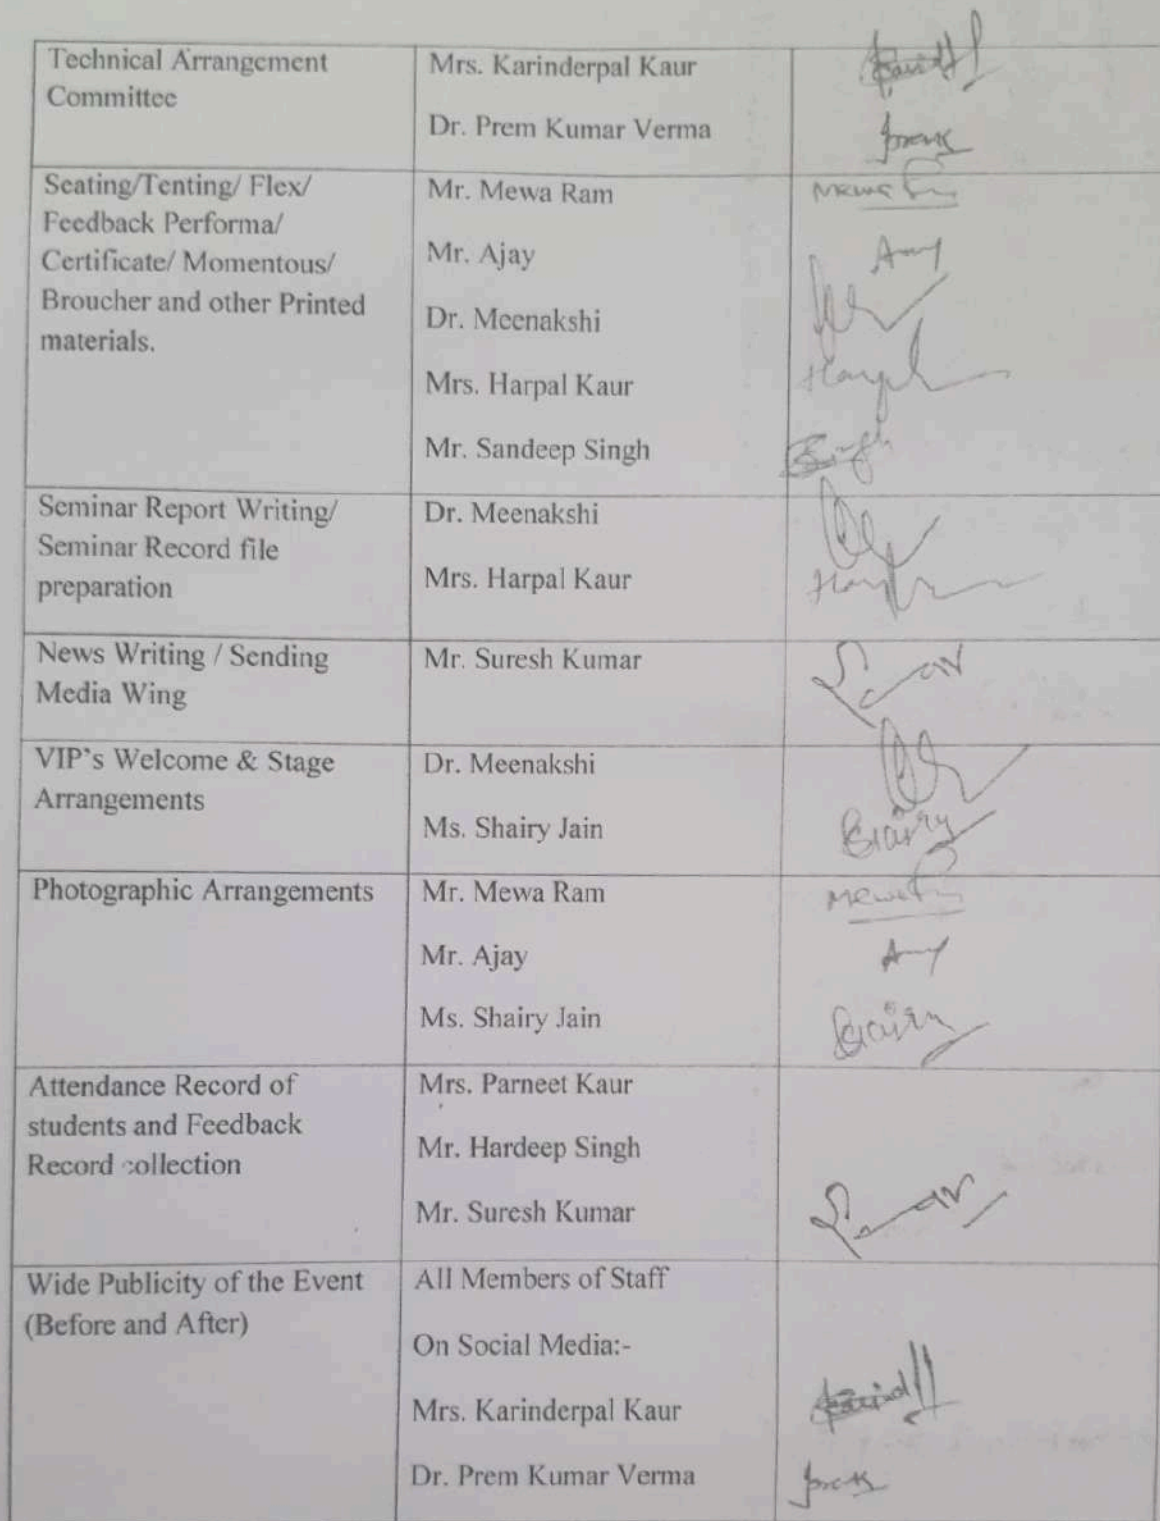 Technical Arrangement
Committee
Mrs. Karinderpal Kaur
Dr. Prem Kumar Verma
Seating/Tenting/ Flex/
Feedback Performa/
Certificate/ Momentous/
Broucher and other Printed
materials.
Mr. Mewa Ram
Mewa
Mr. Ajay
Dr. Meenakshi
Mrs. Harpal Kaur
Mr. Sandeep Singh
Singh
Seminar Report Writing/
Seminar Record file
preparation
Dr. Meenakshi
Mrs. Harpal Kaur
News Writing / Sending
Media Wing
Mr. Suresh Kumar
VIP's Welcome & Stage
Arrangements
Dr. Meenakshi
Ms. Shairy Jain
Shairy
Photographic Arrangements
Mr. Mewa Ram
Mewa
Mr. Ajay
Ms. Shairy Jain
Shairy
Attendance Record of
students and Feedback
Record collection
Mrs. Parneet Kaur
Mr. Hardeep Singh
Mr. Suresh Kumar
Wide Publicity of the Event
(Before and After)
All Members of Staff
On Social Media:-
Mrs. Karinderpal Kaur
Dr. Prem Kumar Verma